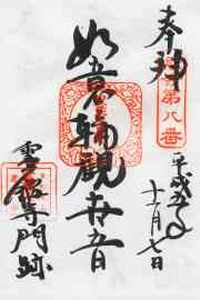 奉拝
第八番
平成五年
十一月七日
如意輪観世音
霊鑑寺門跡